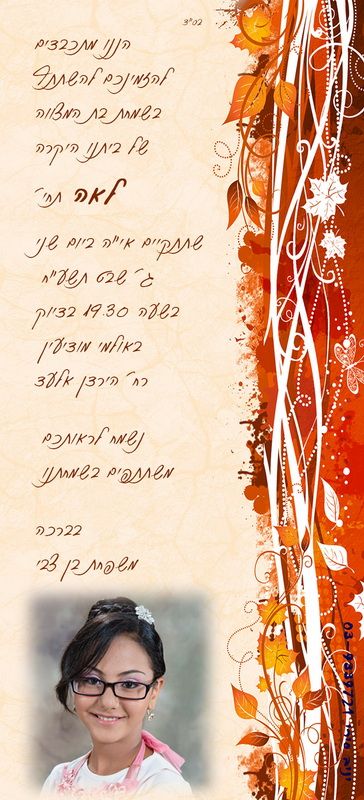 בס״ד
הננו מתכבדים
להזמינכם להשתתף
בשמחת בת המצווה
של ביתנו היקרה
לאה תחי׳
שתתקיים אי״ה ביום שני
ג׳ שבט תשע״ח
בשעה 19.30 בדיוק
באולמי מודיעין
רח׳ הירצן אלעד
נשמח לראותכם
משתתפים בשמחתנו
בברכה
משפחת בן צבי